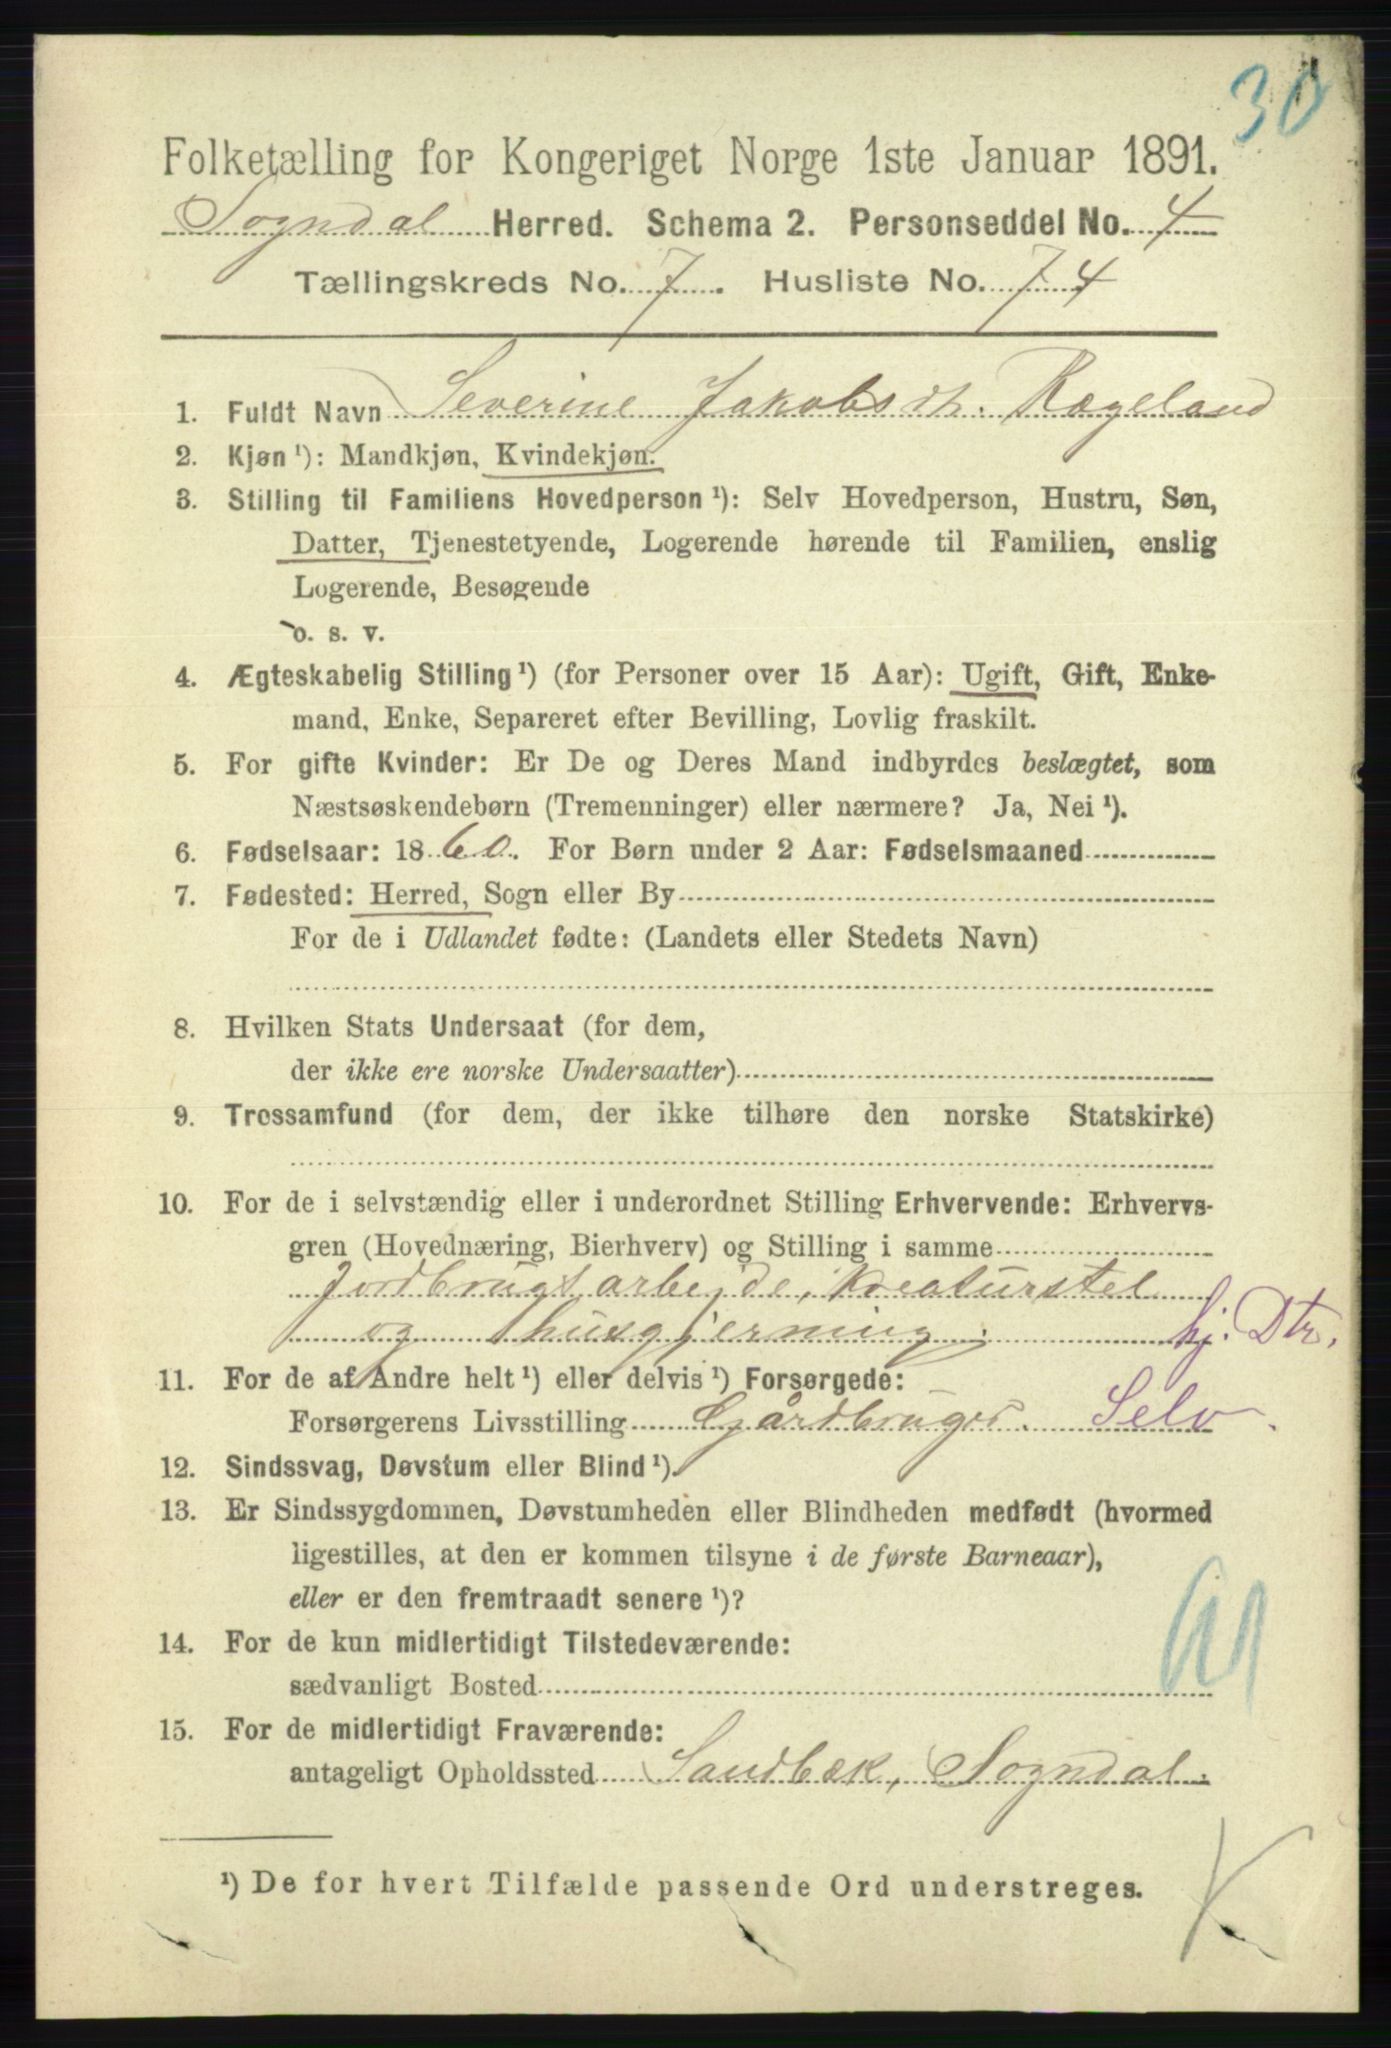 30
Folketælling for Kongeriget Norge 1ste Januar 1891.
Sogndal Herred. Schema 2. Personseddel No. 4
Tællingskreds No. 7. Husliste No. 74
1. Fuldt Navn Severine Jakobsdt. Rægeland
2. Kjøn ¹): Mandkjøn, Kvindekjøn.
3. Stilling til Familiens Hovedperson ¹): Selv Hovedperson, Hustru, Søn,
Datter, Tjenestetyende, Logerende hørende til Familien, enslig
Logerende, Besøgende
o. s. v.
4. Ægteskabelig Stilling ¹) (for Personer over 15 Aar): Ugift, Gift, Enke-
mand, Enke, Separeret efter Bevilling, Lovlig fraskilt.
5. For gifte Kvinder: Er De og Deres Mand indbyrdes beslægtet, som
Næstsøskendebørn (Tremenninger) eller nærmere? Ja, Nei ¹).
6. Fødselsaar: 1860. For Børn under 2 Aar: Fødselsmaaned
7. Fødested: Herred, Sogn eller By
For de i Udlandet fødte: (Landets eller Stedets Navn)
8. Hvilken Stats Undersaat (for dem,
der ikke ere norske Undersaatter)
9. Trossamfund (for dem, der ikke tilhøre den norske Statskirke)
10. For de i selvstændig eller i underordnet Stilling Erhvervende: Erhvervs-
gren (Hovednæring, Bierhverv) og Stilling i samme
Jordbrugsarbejde, Kreaturstel
og husgjerning. hj. Dtr.
11. For de af Andre helt ¹) eller delvis ¹) Forsørgede:
Forsørgerens Livsstilling Gårdbruger. Selv.
12. Sindssvag, Døvstum eller Blind ¹).
13. Er Sindssygdommen, Døvstumheden eller Blindheden medfødt (hvormed
ligestilles, at den er kommen tilsyne i de første Barneaar),
eller er den fremtraadt senere ¹)?
14. For de kun midlertidigt Tilstedeværende:
sædvanligt Bosted
15. For de midlertidigt Fraværende:
antageligt Opholdssted Sandbæk, Sogndal.
¹) De for hvert Tilfælde passende Ord understreges.